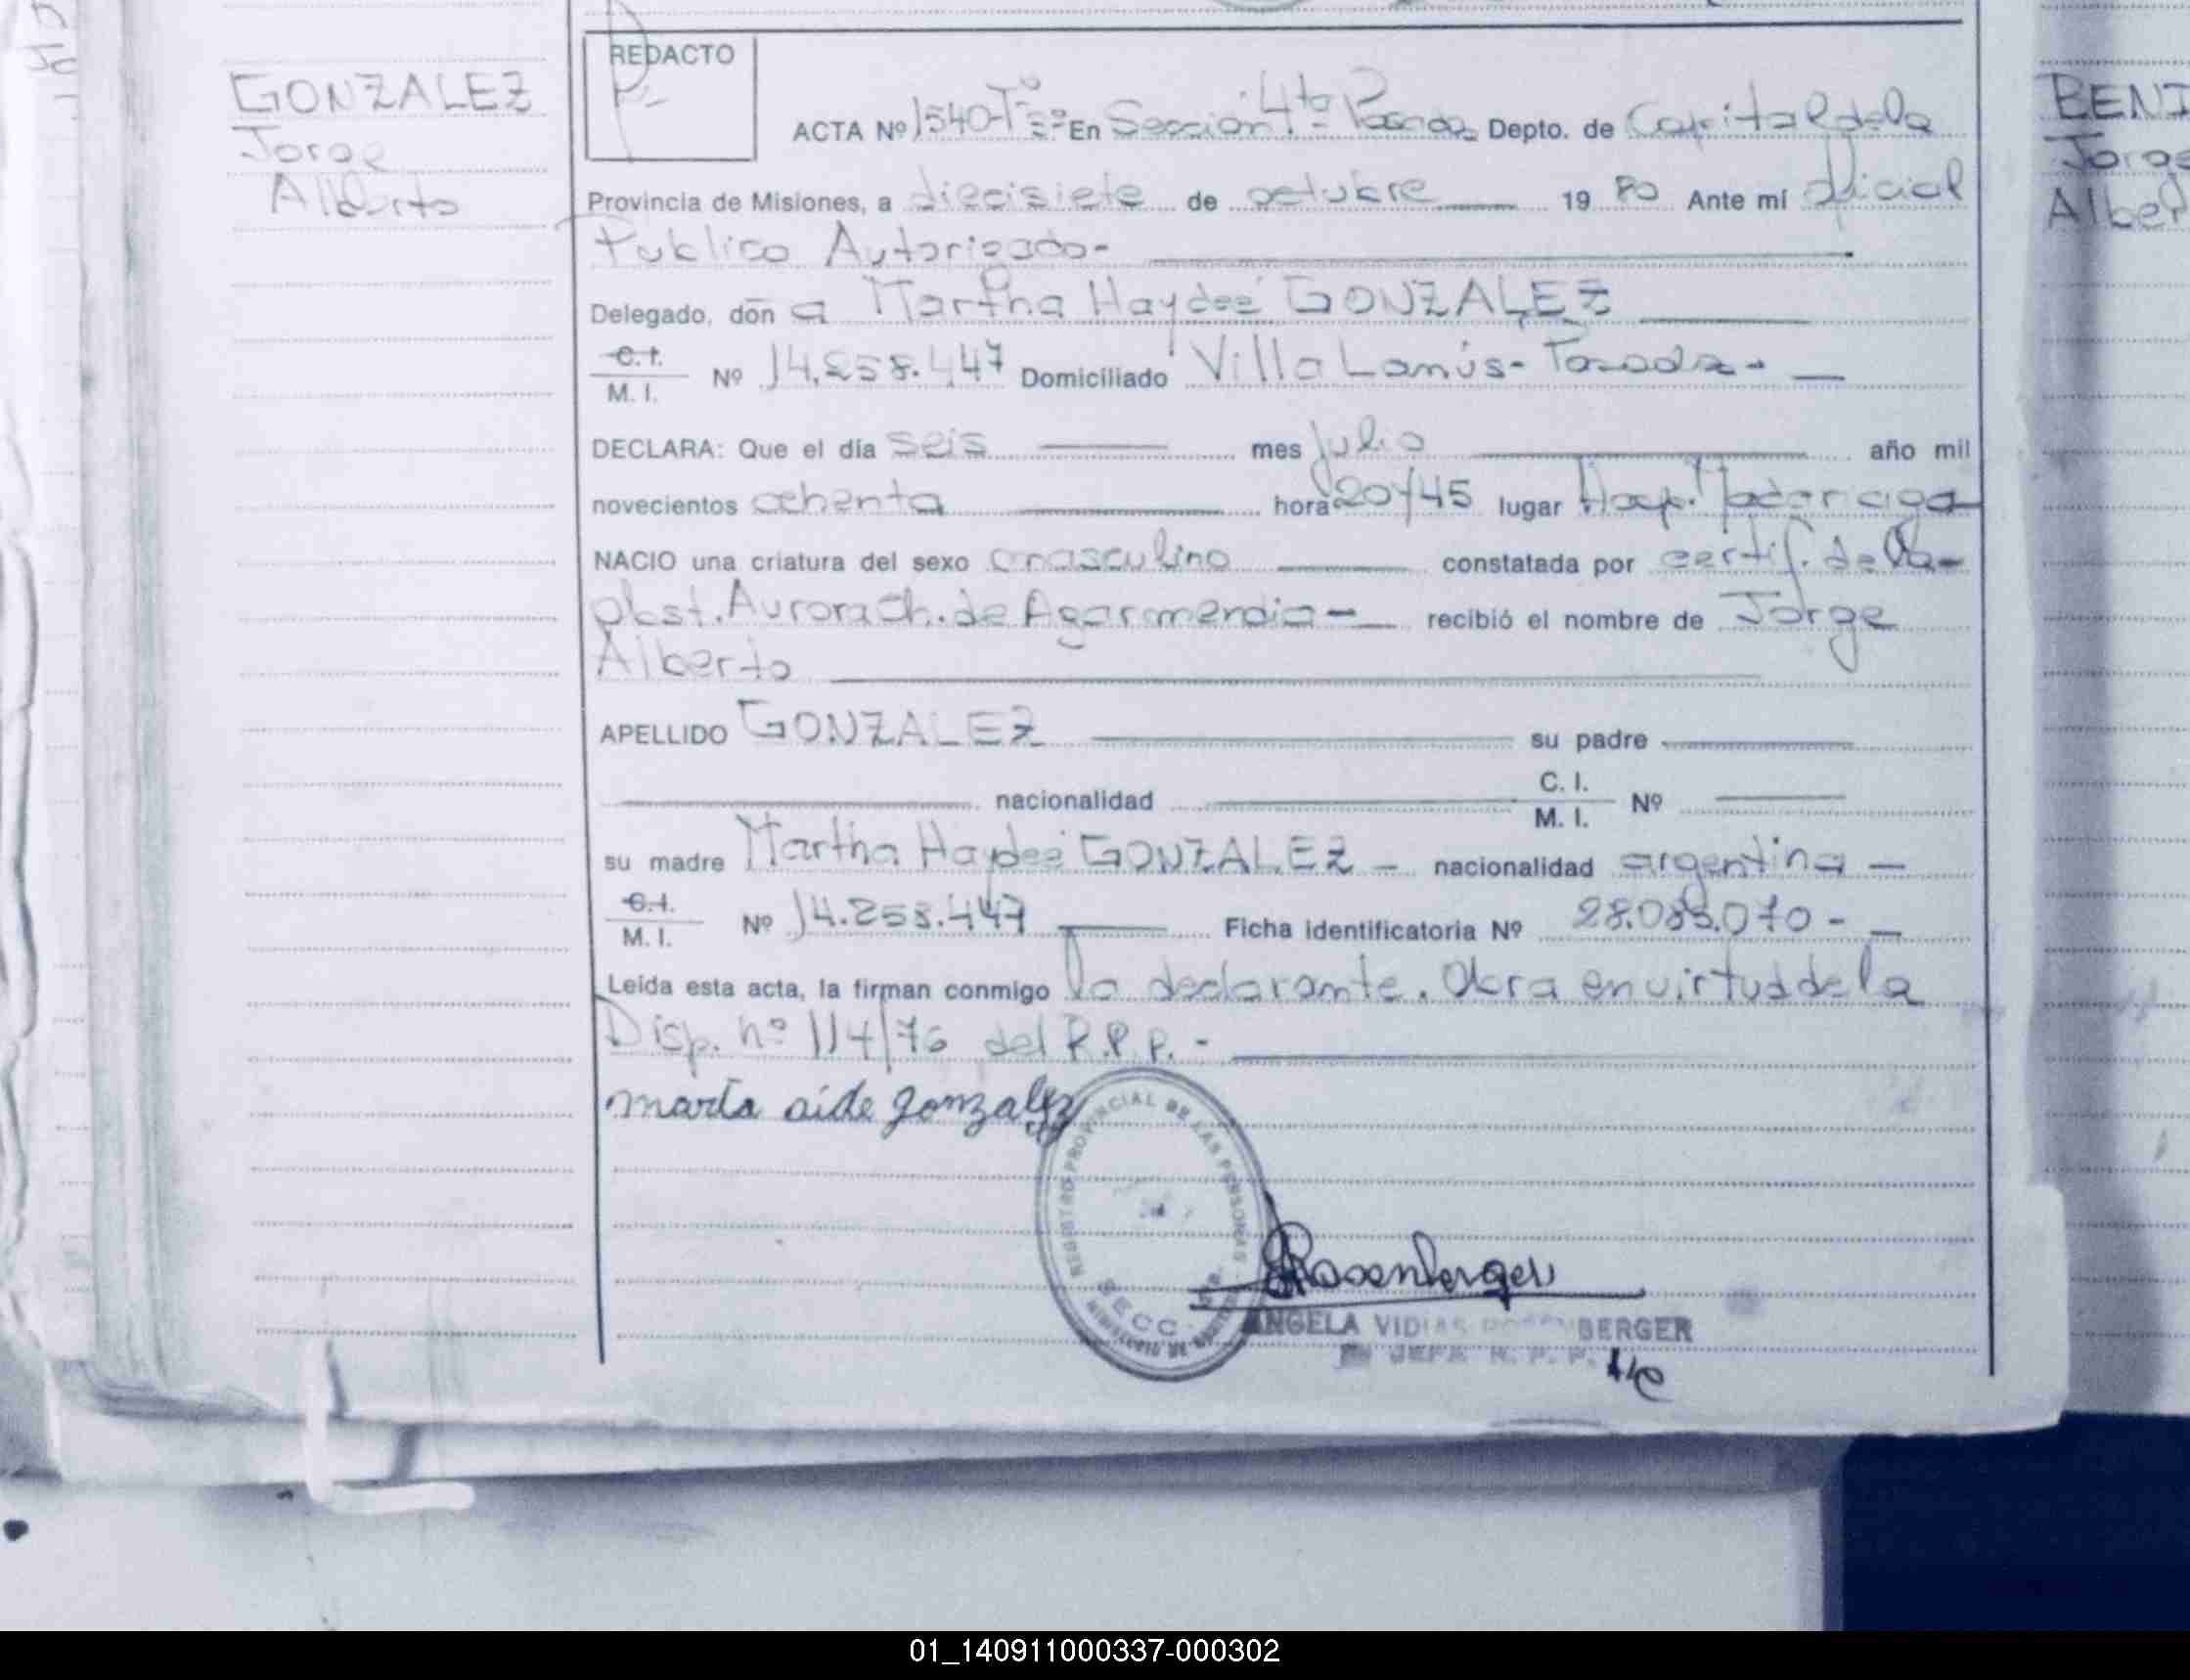 REDACTO
GONZALEZ
Jorge
Alberto
ACTA Nº 1540-Tº En Sección 4ta Posadas Depto. de Capital de la
Provincia de Misiones, a diecisiete de octubre 19 80 Ante mí Oficial
Publico Autorizado-
Delegado, don a Martha Haydeé GONZALEZ
C. I.
M. I. Nº 14.258.447 Domiciliado Villa Lanús- Posadas-
DECLARA: Que el día seis mes julio año mil
novecientos ochenta hora 20/45 lugar Hosp. Madariaga
NACIO una criatura del sexo masculino constatada por certif. de la
obst. Aurora Ch. de Agarmendia- recibió el nombre de Jorge
Alberto
APELLIDO GONZALEZ su padre
nacionalidad C. I.
M. I. Nº
su madre Martha Haydeé GONZALEZ - nacionalidad argentina -
C. I.
M. I. Nº 14.258.447 Ficha identificatoria Nº 28.083.070-
Leída esta acta, la firman conmigo la declarante. Obra en virtud de la
Disp. nº 114/76 del R.P.P. -
marta aide gonzalez
REGISTRO PROVINCIAL DE LAS PERSONAS
SECC.
Rosenberger
ANGELA VIDIAS ROSENBERGER
JEFA R. P. P.
BENI
Jorge
Alber
01_140911000337-000302